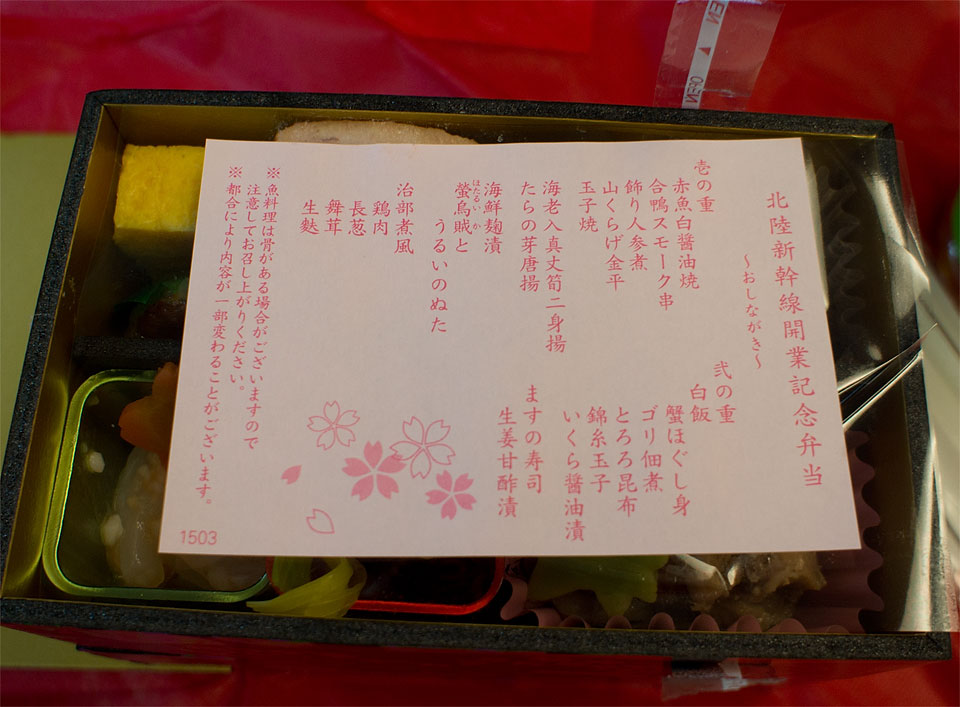 北陸新幹線開業記念弁当
～おしながき～
壱の重
赤魚白醤油焼
合鴨スモーク串
飾り人参煮
山くらげ金平
玉子焼
海老入真丈筍二身揚
たらの芽唐揚
海鮮麹漬
螢烏賊と
ほたるいか
うるいのぬた
治部煮風
鶏肉
長葱
舞茸
生麩
弐の重
白飯
蟹ほぐし身
ゴリ佃煮
とろろ昆布
錦糸玉子
いくら醤油漬
ますの寿司
生姜甘酢漬
※魚料理は骨がある場合がございますので
注意してお召し上がりください。
※都合により内容が一部変わることがございます。
1503